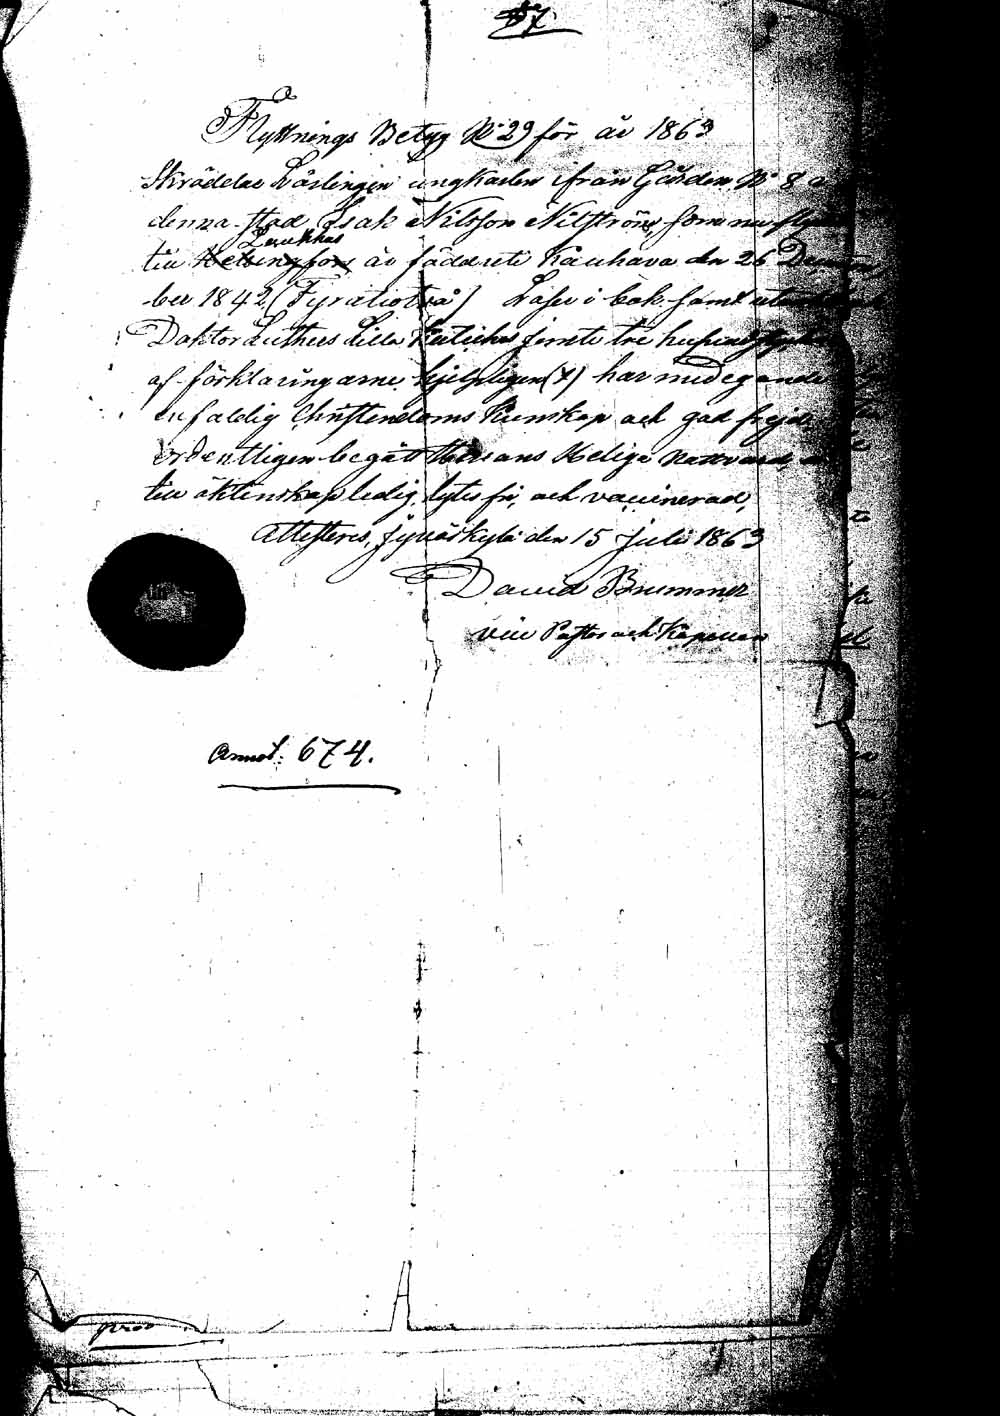 57.
Flyttnings Betyg No 29 för år 1863
Skräddae Lärlingen ungkarlen ifrån Gården No 8
denna stad Isak Nilsson Nilström, som nu flyttar
Laukkas
till Helsingfors är född uti Kauhava den 26 Decem
ber 1842 (Fyratiotvå) Läser i bok samt utantill
Doktor Luthers Lilla Kateches jemte tre hufvudstycken
af förklaringarne hjelpligen (x) har med egande
enfaldig Christendoms Kunskap och god frejd
ordentligen begått Herrans Heliga Nattvard,
till äktenskap ledig, lytes fri, och vaccinerad,
Attesteras, Jyväskylä den 15 Juli 1863
David Brummer
vice Pastor och Kapellan
Annot: 674.